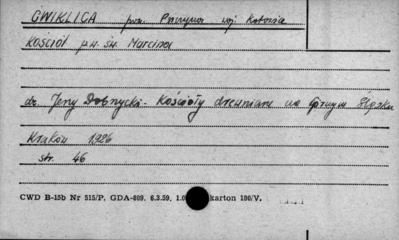 ĆWIKLICA pow. Pszczyna woj. Katowice
KOŚCIÓŁ p.w. św. Marcina
dr. Jerzy Dobrzycki - Kościoły drewniane na Górnym Śląsku
Kraków 1926
str. 46
CWD B-15b Nr 515/P. GDA-809. 6.3.59. 1.0 karton 180/V.